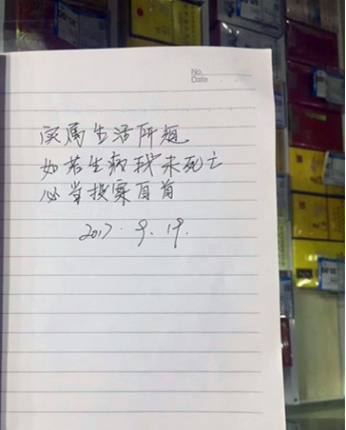 No.
Date
实属生活所迫
如若生病我未死亡
必当投案自首
2017.9.19.